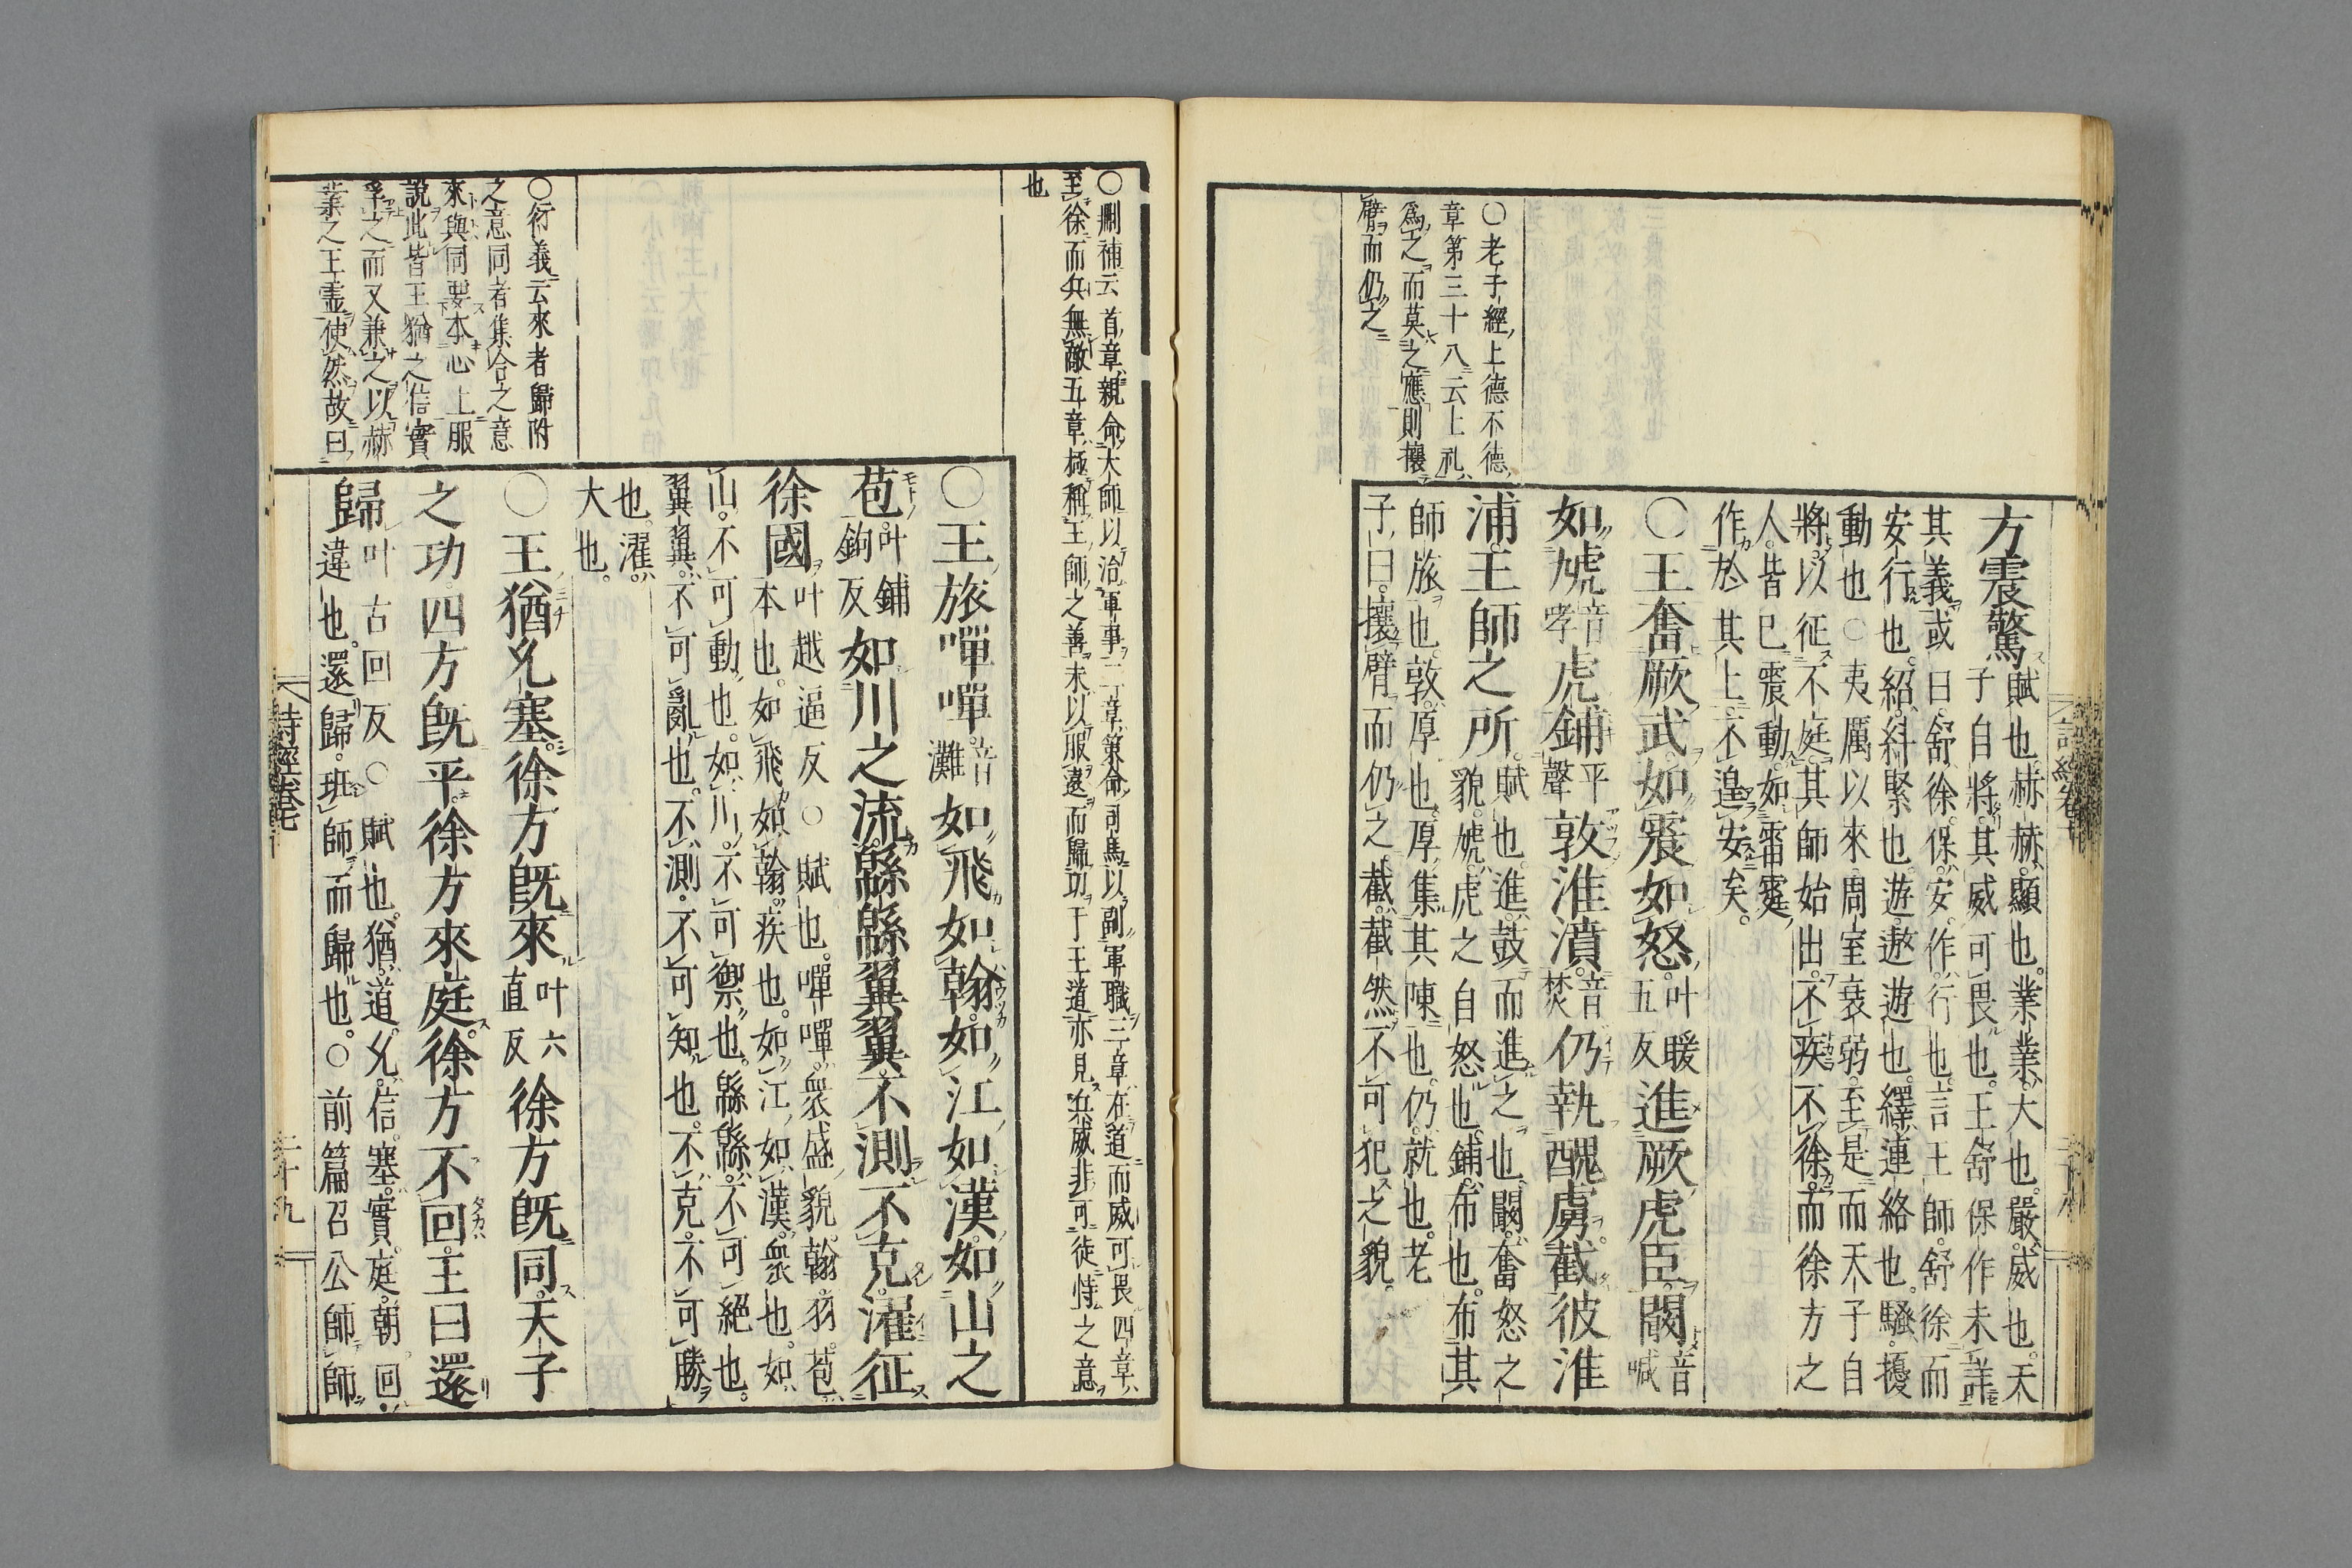 ○老子經上德不德
章第三十八云上礼
爲之而莫之應則攘
臂而仍之
方震驚賦也赫赫顯也業業大也嚴威也天
子自將其威可畏也王舒保作未詳
其義或曰舒徐保安作行也言王師舒徐而
安行也紹糾緊也遊遨遊也繹連絡也騷擾
動也○夷厲以來周室衰弱至是而天子自
將以征不庭其師始出不疾不徐而徐方之
人皆已震動如雷霆
作於其上不遑安矣
○王奮厥武如震如怒叶暖五反進厥虎臣闞音喊
如虓音哮虎鋪平聲敦淮濆音焚仍執醜虜截彼淮
浦王師之所賦也進鼓而進之也闞奮怒之
貌虓虎之自怒也鋪布也布其
師旅也敦厚也厚集其陳也仍就也老
子曰攘臂而仍之截截然不可犯之貌
○刪補云首章親命大師以治軍事二章策命司馬以副軍職三章在道而威可畏四章
至徐而兵無敵五章極稱王師之善末以服遠而歸功于王道亦見兵威非可徒恃之意
也
○王旅嘽嘽音灘如飛如翰如江如漢如山之
苞叶鋪鉤反如川之流緜緜翼翼不測不克濯征
徐國叶越逼反○賦也嘽嘽衆盛貌翰羽苞
本也如飛如翰疾也如江如漢衆也如
山不可動也如川不可禦也緜緜不可絕也
翼翼不可亂也不測不可知也不克不可勝
也濯
大也
○衍義云來者歸附
之意同者集合之意
來與同要本心上服
說此皆王猶之信實
孚之而又兼之以赫
業之王霊使然故曰
○王猶允塞徐方旣來叶六直反徐方旣同天子
之功四方旣平徐方來庭徐方不回王曰還
歸叶古回反○賦也猶道允信塞實庭朝回
違也還歸班師而歸也○前篇召公師師
詩經卷七
二十九